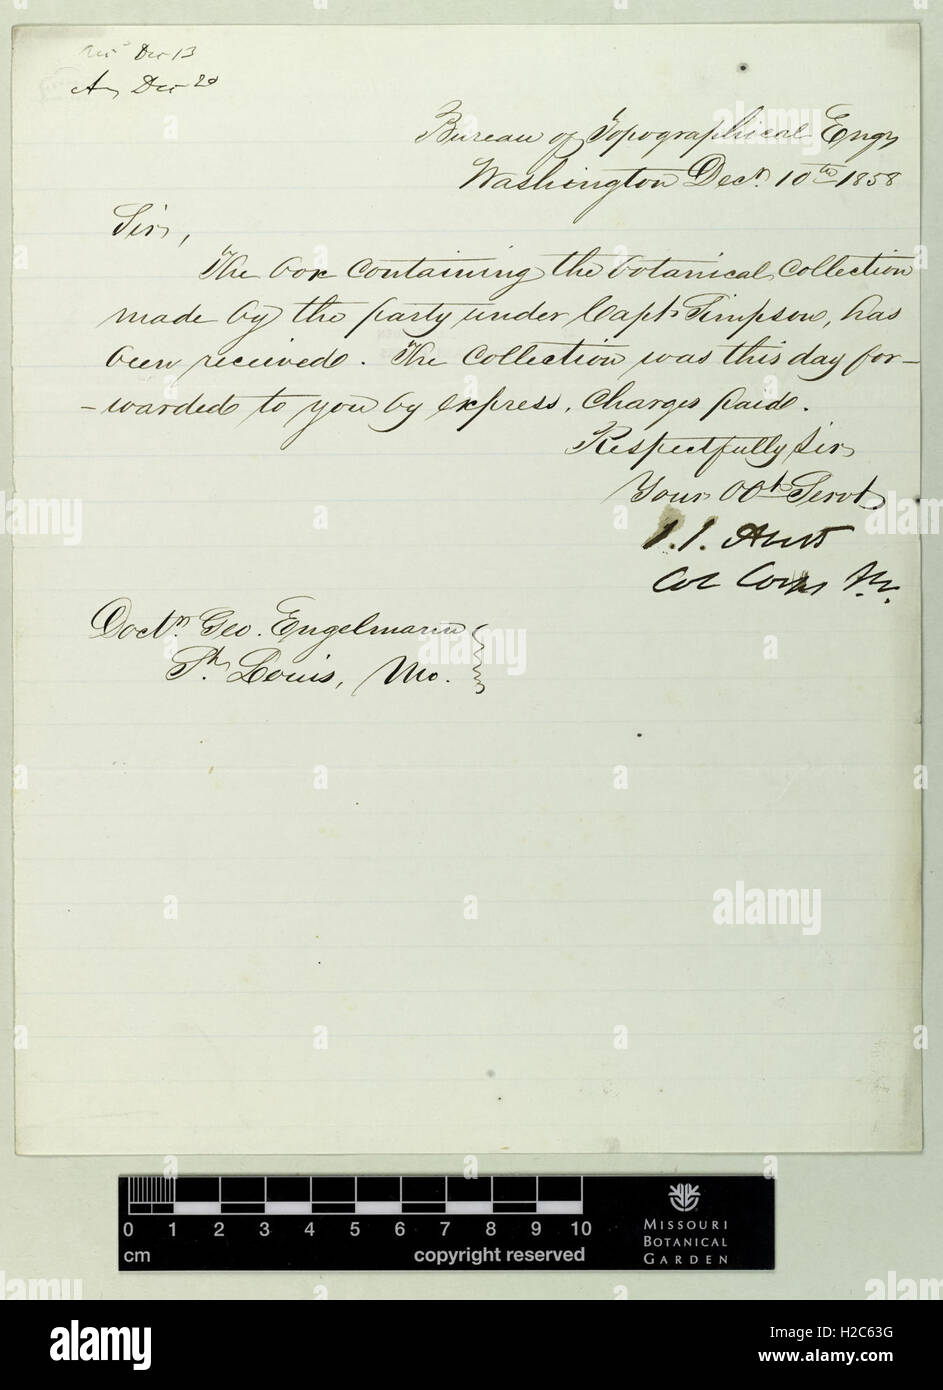 Recd Dec 13
An Dec 20
Bureau of Topographical Engrs
Washington Decr. 10th 1858
Sir,
The box containing the botanical collection
made by the party under Capt. Simpson, has
been received. The collection was this day for-
-warded to you by express, charges paid.
Respectfully Sir
Your Obt Servt
J. J. Abert
Col Corps T. E.
Doctr. Geo. Engelmann
St. Louis, Mo.
0 1 2 3 4 5 6 7 8 9 10
cm
copyright reserved
MISSOURI
BOTANICAL
GARDEN
alamy
Image ID: H2C63G
www.alamy.com